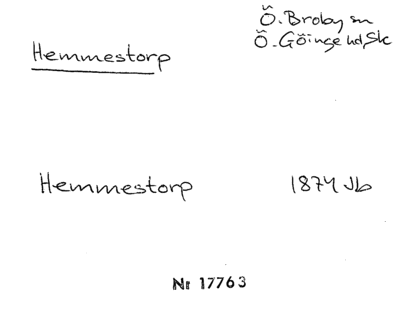 Ö. Broby sn
Ö. Göinge hd, Sk
Hemmestorp
Hemmestorp 1874 Jb
Nr 17763